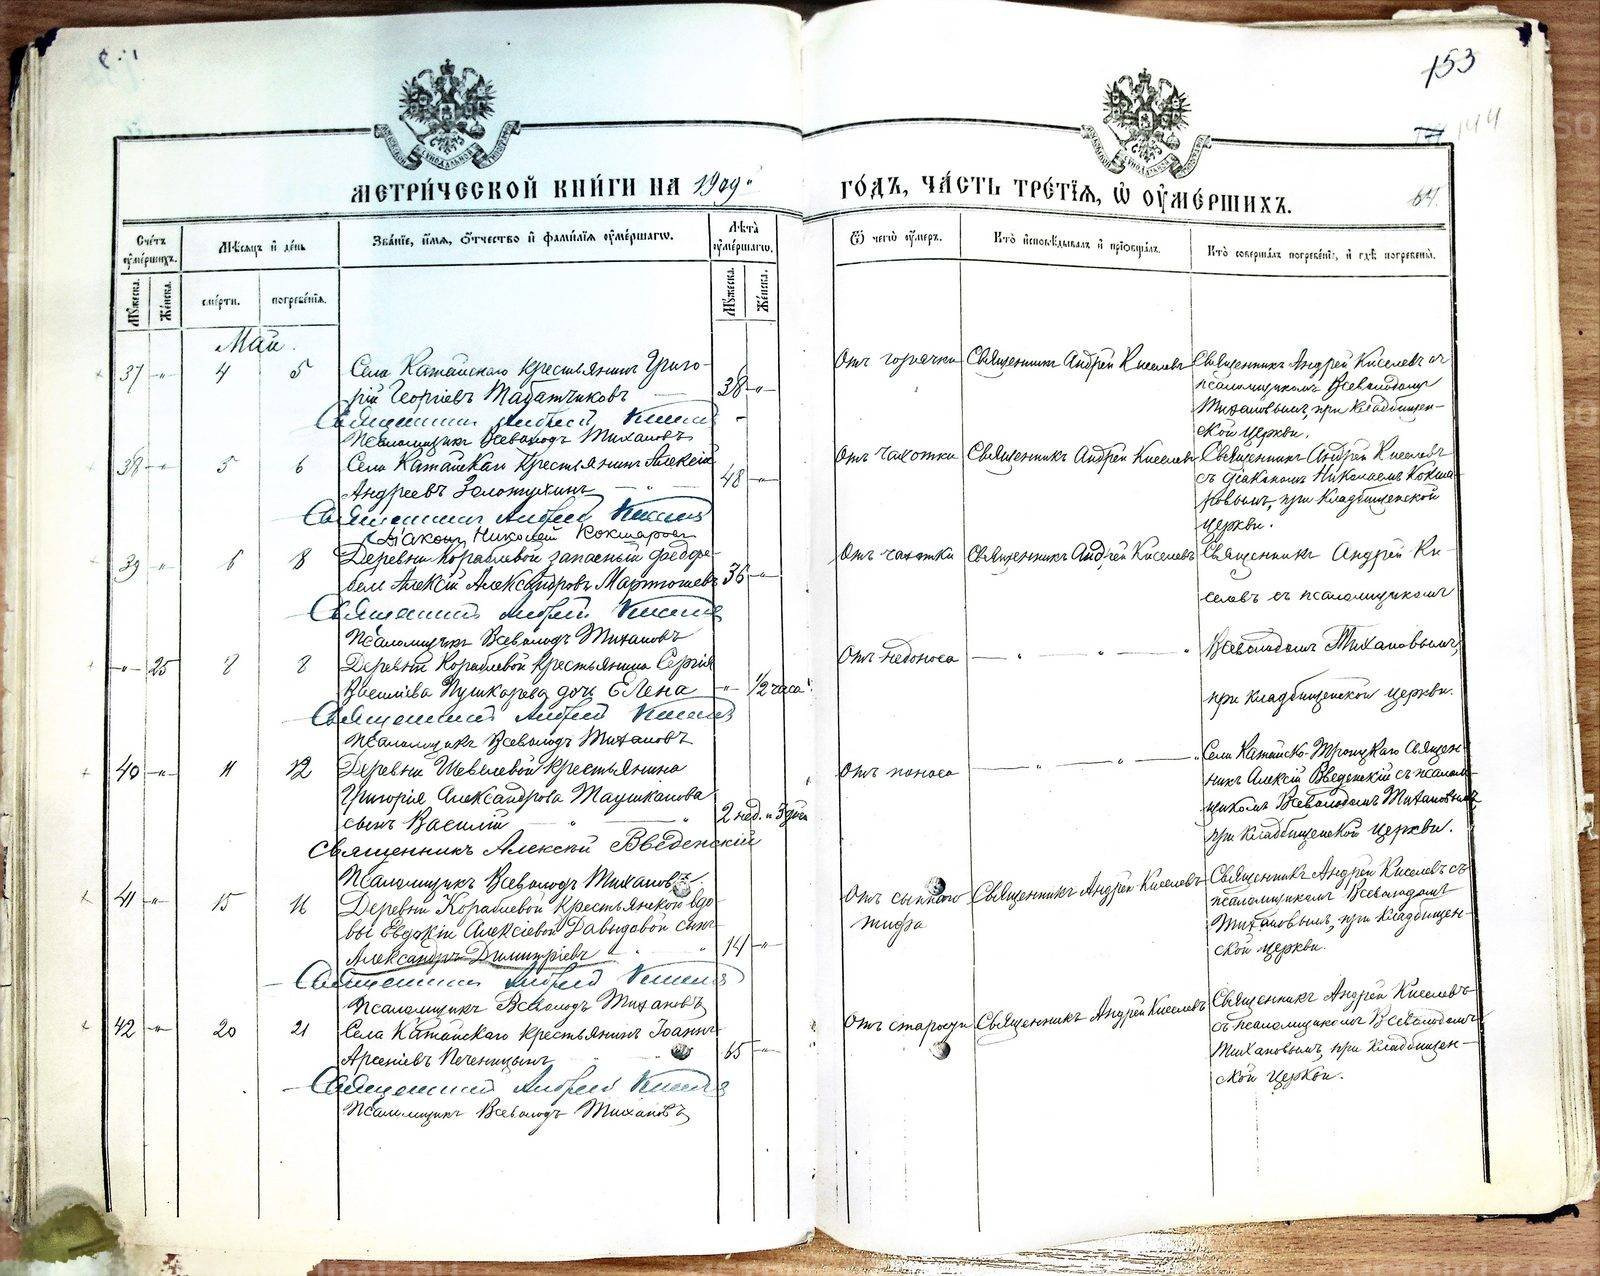 153
144
64.
МЕТРИ́ЧЕСКОЙ КНИ́ГИ НА 1909
ГО́ДЪ, ЧА́СТЬ ТРЕ́ТІѦ, Ѡ҆ ОУ҆МЕ́РШИХЪ.
Сче́тъ оу҆ме́ршихъ.
Мѣ́сѧцъ и҆ де́нь
Зва́нїе, и҆́мѧ, ѻ҆́тчество и҆ фами́лїѧ оу҆ме́ршагѡ.
Лѣ́та оу҆ме́ршагѡ.
Ѿ чегѡ̀ оу҆́меръ.
Кто̀ и҆сповѣ́дывалъ и҆ прїѡбща́лъ.
Кто̀ соверша́лъ погребе́нїе, и҆ гдѣ̀ погребены̀.
Мꙋ́жеска.
Же́нска.
сме́рти.
погребе́нїѧ.
Мꙋ́жеска.
Же́нска.
Май.
37 -"- 4 5 Села Катайскаго крестьянинъ Григо-
рій Георгіевъ Табатчиковъ 38 -"-
Священникъ Андрей Киселевъ
Псаломщикъ Всеволодъ Тихановъ
Отъ горячки Священникъ Андрей Киселевъ Священникъ Андрей Киселевъ съ
псаломщикомъ Всеволодомъ
Тихановымъ, при кладбищен-
ской церкви.
38 -"- 5 6 Села Катайскаго крестьянинъ Алексій
Андреевъ Золотухинъ 48 -"-
Священникъ Андрей Киселевъ
Діаконъ Николай Кокшаровъ
Отъ чахотки Священникъ Андрей Киселевъ Священникъ Андрей Киселевъ
съ діакономъ Николаемъ Кокша-
ровымъ, при кладбищенской
церкви.
39 -"- 6 8 Деревни Кораблевой запасный федфе-
бель Алексій Александровъ Мартюшевъ 36 -"-
Священникъ Андрей Киселевъ
Псаломщикъ Всеволодъ Тихановъ
Отъ чахотки Священникъ Андрей Киселевъ Священникъ Андрей Ки-
селевъ съ псаломщикомъ
-"- 25 8 8 Деревни Кораблевой крестьянина Сергія
Василіева Пушкарева дочь Елена -"- 1/2 часа
Священникъ Андрей Киселевъ
Псаломщикъ Всеволодъ Тихановъ
Отъ недоноса Всеволодомъ Тихановымъ,
при кладбищенской церкви.
40 -"- 11 12 Деревни Шевелевой крестьянина
Григорія Александрова Таушканова
сынъ Василій 2 нед. и 3 дня
Священникъ Алексій Введенскій
Псаломщикъ Всеволодъ Тихановъ
Отъ поноса Села Катайско-Троицкаго Священ-
никъ Алексій Введенскій съ псалом-
щикомъ Всеволодомъ Тихановымъ,
при кладбищенской церкви.
41 -"- 15 16 Деревни Кораблевой крестьянской вдо-
вы Евдокіи Алексіевой Давыдовой сынъ
Александръ Димитріевъ 14 -"-
Священникъ Андрей Киселевъ
Псаломщикъ Всеволодъ Тихановъ
Отъ сыпного Священникъ Андрей Киселевъ Священникъ Андрей Киселевъ съ
тифа псаломщикомъ Всеволодомъ
Тихановымъ, при кладбищен-
ской церкви.
42 -"- 20 21 Села Катайскаго крестьянинъ Іоаннъ
Арсеніевъ Печеницынъ 65 -"-
Священникъ Андрей Киселевъ
Псаломщикъ Всеволодъ Тихановъ
Отъ старости Священникъ Андрей Киселевъ Священникъ Андрей Киселевъ
съ псаломщикомъ Всеволодомъ
Тихановымъ, при кладбищен-
ской церкви.